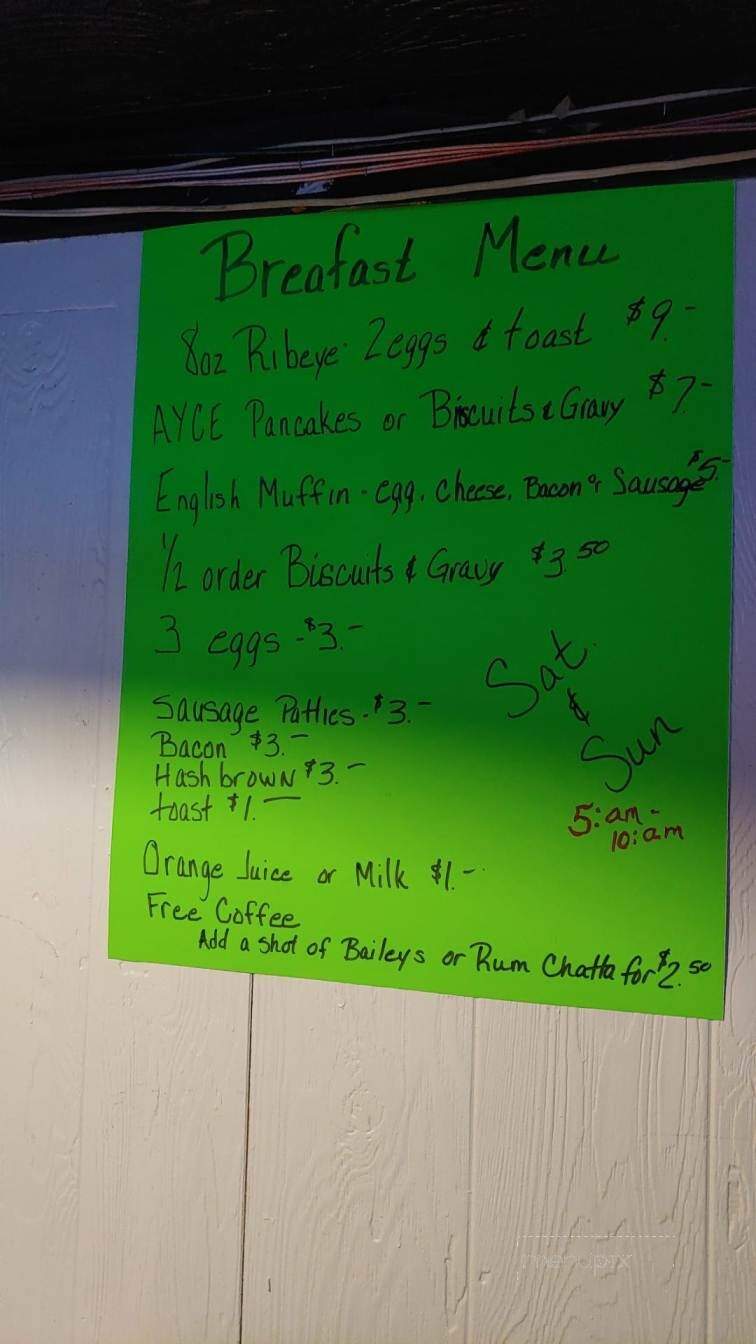 Breafast Menu
8oz Ribeye · 2eggs & toast $9.-
AYCE Pancakes or Biscuits & Gravy $7.-
English Muffin - egg, cheese, Bacon or Sausage $5.-
1/2 order Biscuits & Gravy $3.50
3 eggs - $3.-
Sausage Patties - $3.-
Bacon $3.-
Hash brown $3.-
toast $1.-
Sat.
&
Sun
5:am -
10:am
Orange Juice or Milk $1.-
Free Coffee
Add a shot of Baileys or Rum Chatta for $2.50
menupix